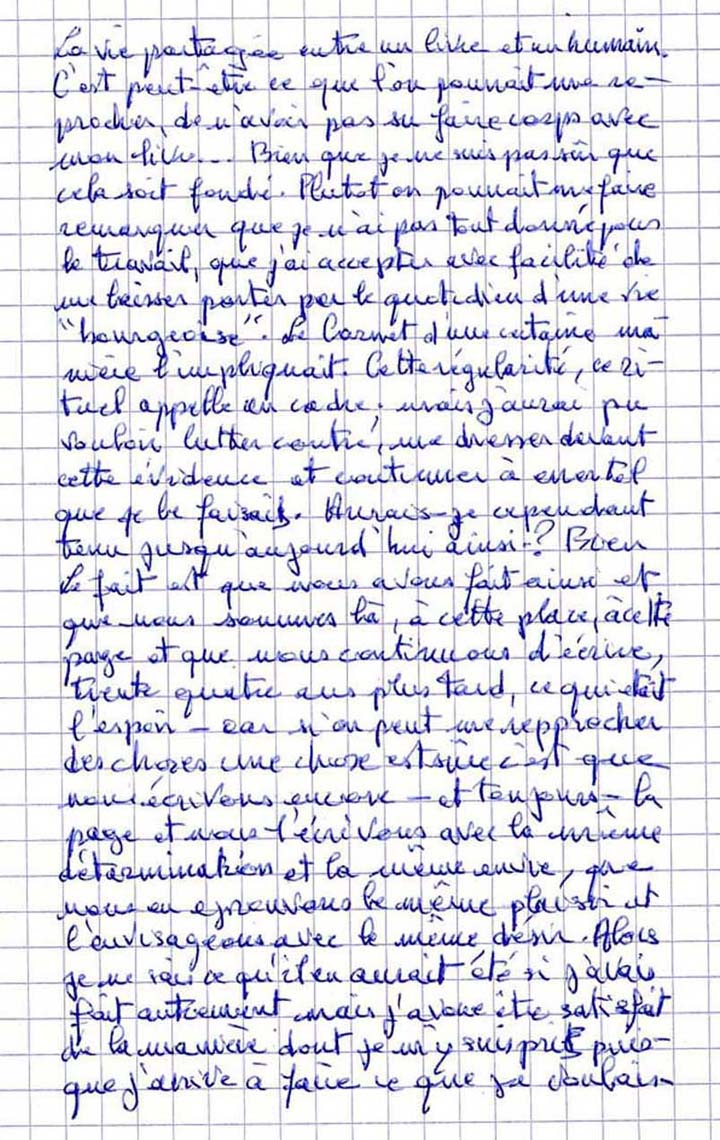 La vie partagée entre un livre et un humain.
C'est peut-être ce que l'on pourrait me re-
procher, de n'avoir pas su faire corps avec
mon livre... Bien que je ne suis pas sûr que
cela soit fondé. Plutot on pourrait me faire
remarquer que je n'ai pas tout donné pour
le travail, que j'ai accepter avec facilité de
me laisser porter par le quotidien d'une vie
"bourgeoise". Le Carnet d'une certaine ma-
nière l'impliquait. Cette régularité, ce ri-
tuel appelle un cadre; mais j'aurai pu
vouloir lutter contre, me dresser devant
cette évidence et continuer à errer tel
que je le faisais. Aurais-je cependant
tenu jusqu'aujourd'hui ainsi? Bien
Le fait est que nous avons fait ainsi et
que nous sommes là, à cette place, à cette
page et que nous continuons d'écrire,
trente quatre ans plus tard, ce qui était
l'espoir - car si on peut me repprocher
des choses une chose est sûre c'est que
nous écrivons encore - et toujours - la
page et nous l'écrivons avec la même
détermination et la même envie, que
nous en éprouvons le même plaisir et
l'envisageons avec le même désir. Alors
je ne sais ce qu'il en aurait été si j'avais
fait autrement mais j'avoue être satisfait
de la manière dont je m'y suis pris puis-
que j'arrive à faire ce que je voulais.